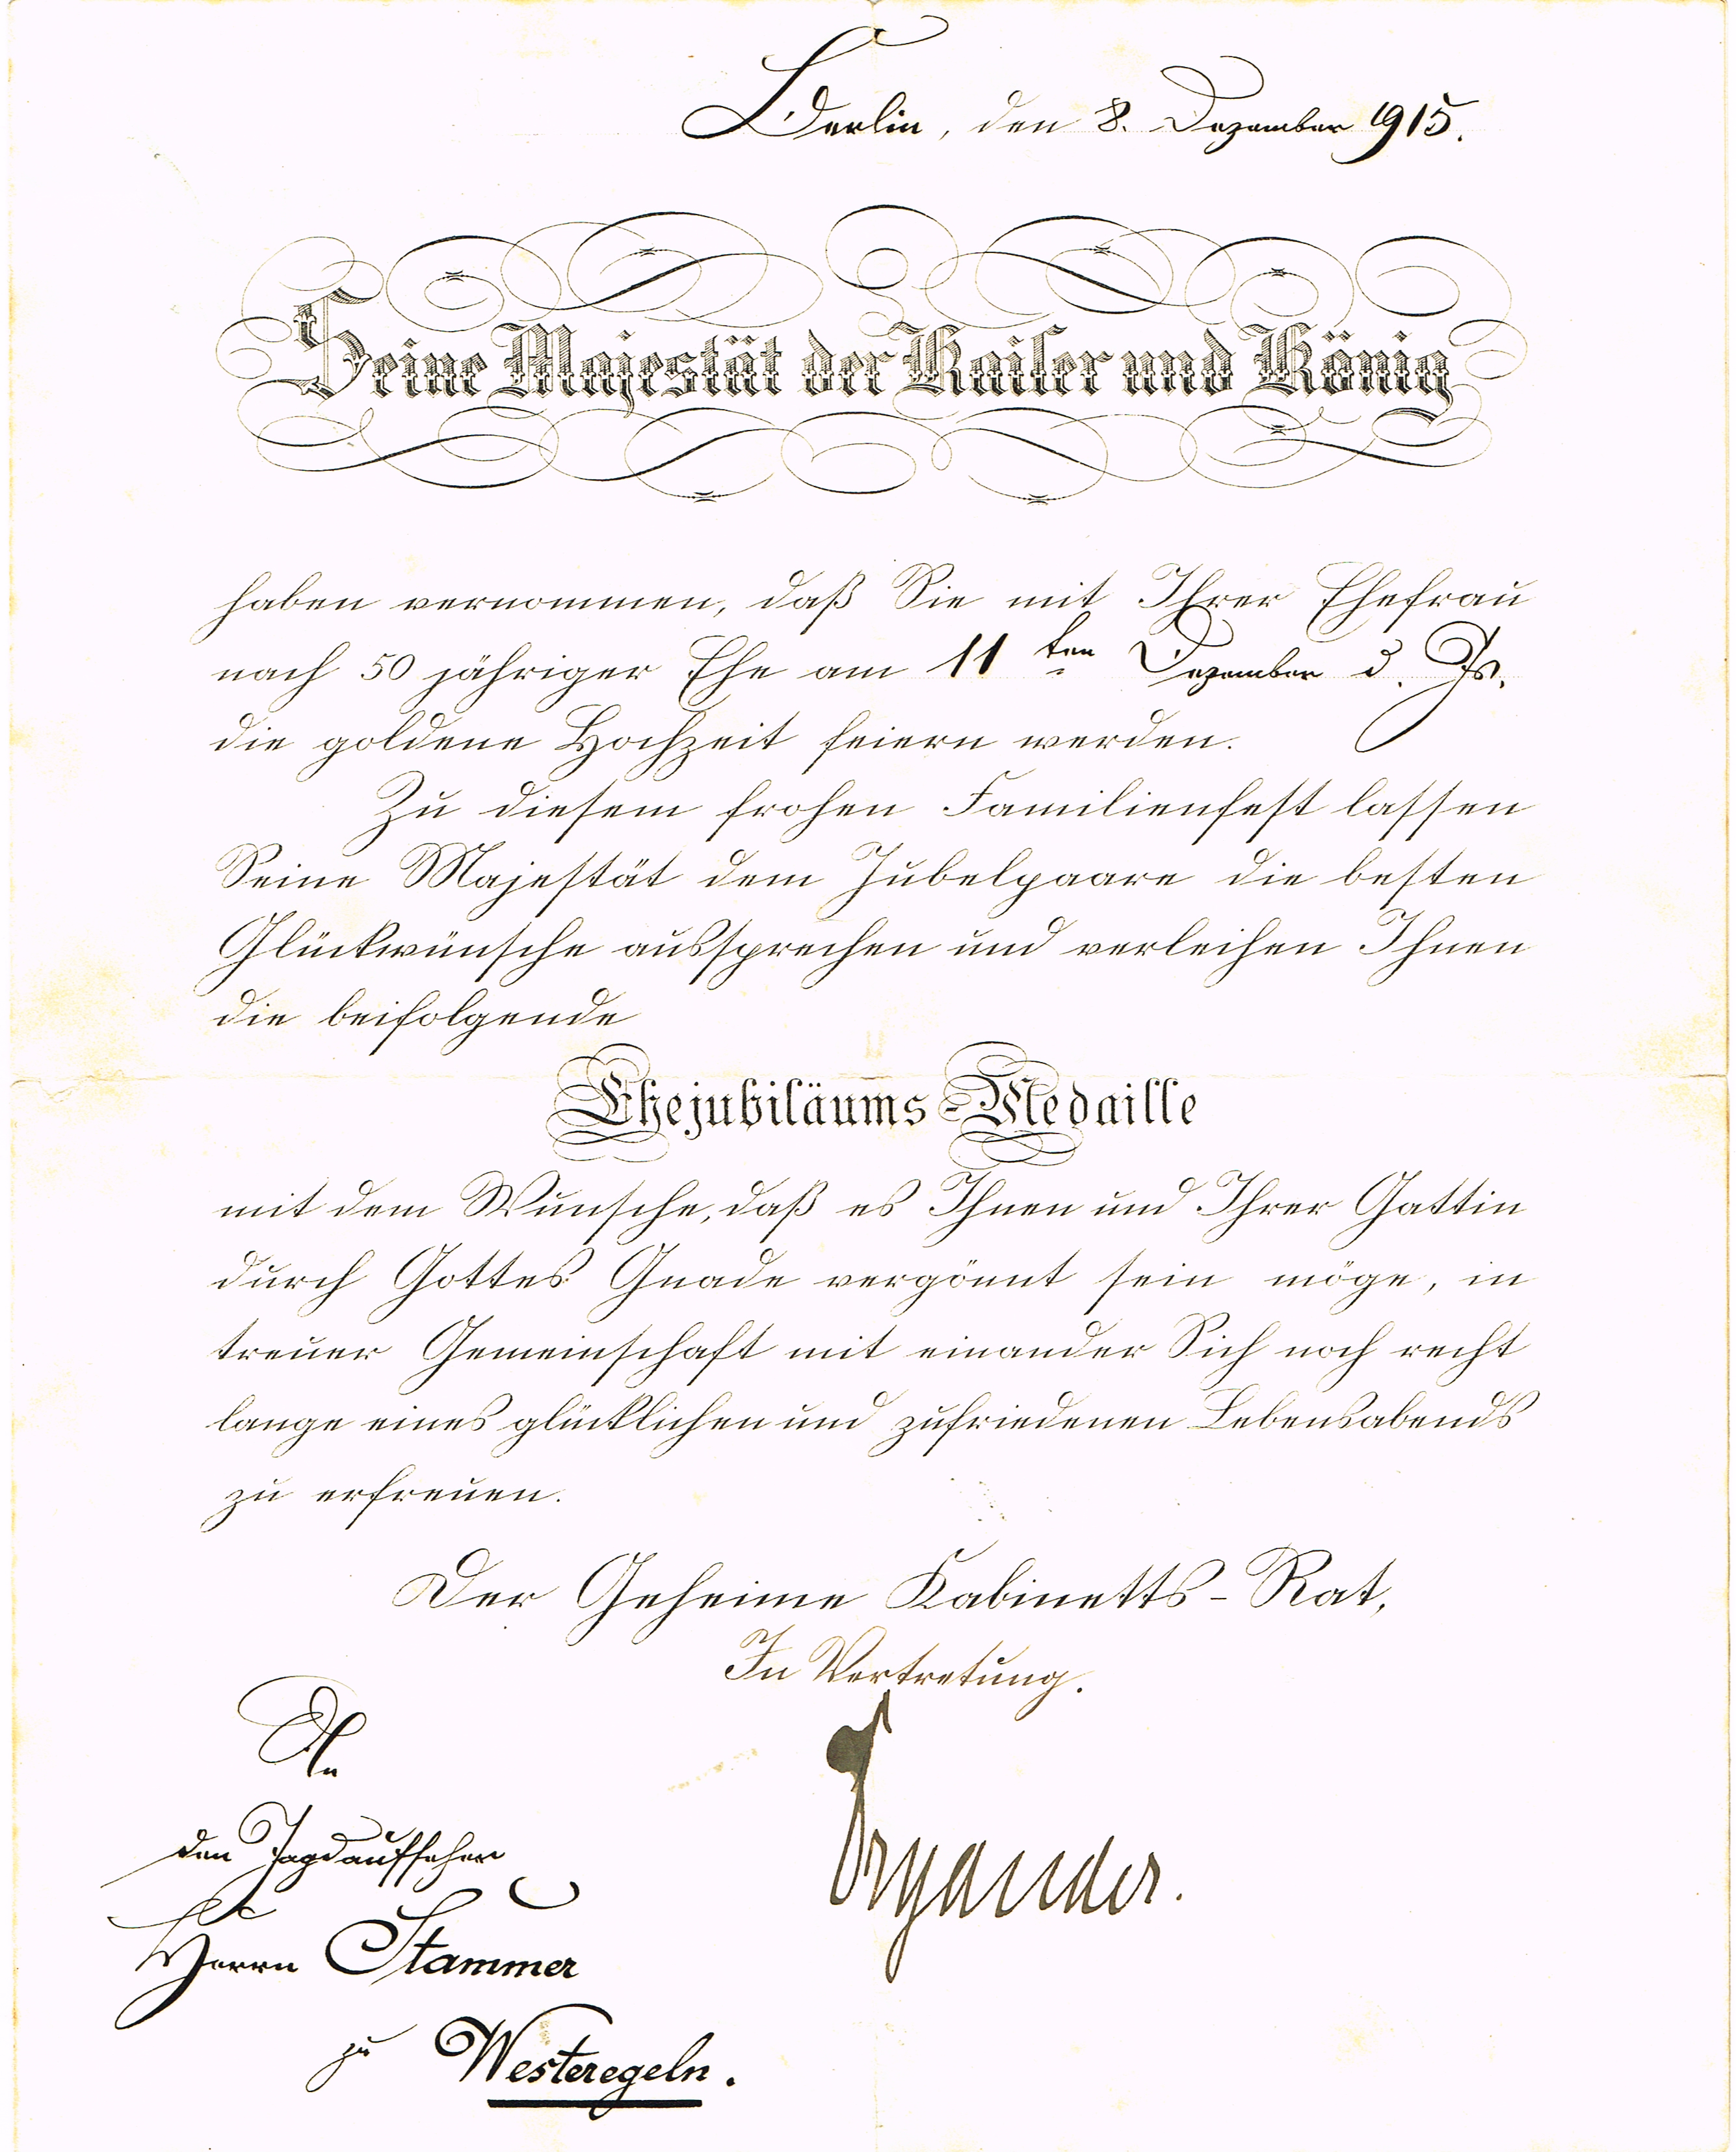 Berlin, den 8. Dezember 1915.
Seine Majestät der Kaiser und König
haben vernommen, daß Sie mit Ihrer Ehefrau
nach 50 jähriger Ehe am 11ten Dezember d. Js.
die goldene Hochzeit feiern werden.
Zu diesem frohen Familienfest lassen
Seine Majestät dem Jubelpaare die besten
Glückwünsche aussprechen und verleihen Ihnen
die beifolgende
Ehejubiläums-Medaille
mit dem Wunsche, daß es Ihnen und Ihrer Gattin
durch Gottes Gnade vergönnt sein möge, in
treuer Gemeinschaft mit einander Sich noch recht
lange eines glücklichen und zufriedenen Lebensabends
zu erfreuen.
Der Geheime Kabinetts-Rat,
In Vertretung.
An
den Jagdaufseher
Herrn Stammer
zu Westeregeln.